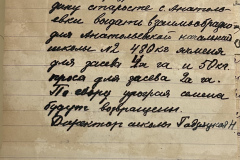 дану старосте с. Анатоль-
евки выдать взаимообразно
для Анатольевской начальной
школы №2 480кг ячменя
для засева 4а га и 50 кг
проса для засева 2а га.
По сборе урожая семена
будут возвращены.
Директор школы